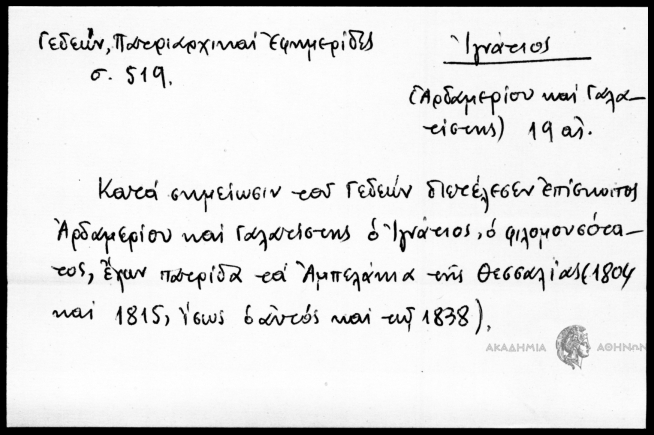 Γεδεών, Πατριαρχικαί Ἐφημερίδες
σ. 519.
Ἰγνάτιος
(Ἀρδαμερίου καί Γαλα-
τίστης) 19 αἰ.
Κατά σημείωσιν τοῦ Γεδεών διετέλεσεν ἐπίσκοπος
Ἀρδαμερίου καί Γαλατίστης ὁ Ἰγνάτιος, ὁ φιλομουσότα-
τος, ἔχων πατρίδα τά Ἀμπελάκια τῆς Θεσσαλίας (1804
καί 1815, ἴσως ὁ αὐτός καί τῷ 1838).
ΑΚΑΔΗΜΙΑ ΑΘΗΝΩΝ